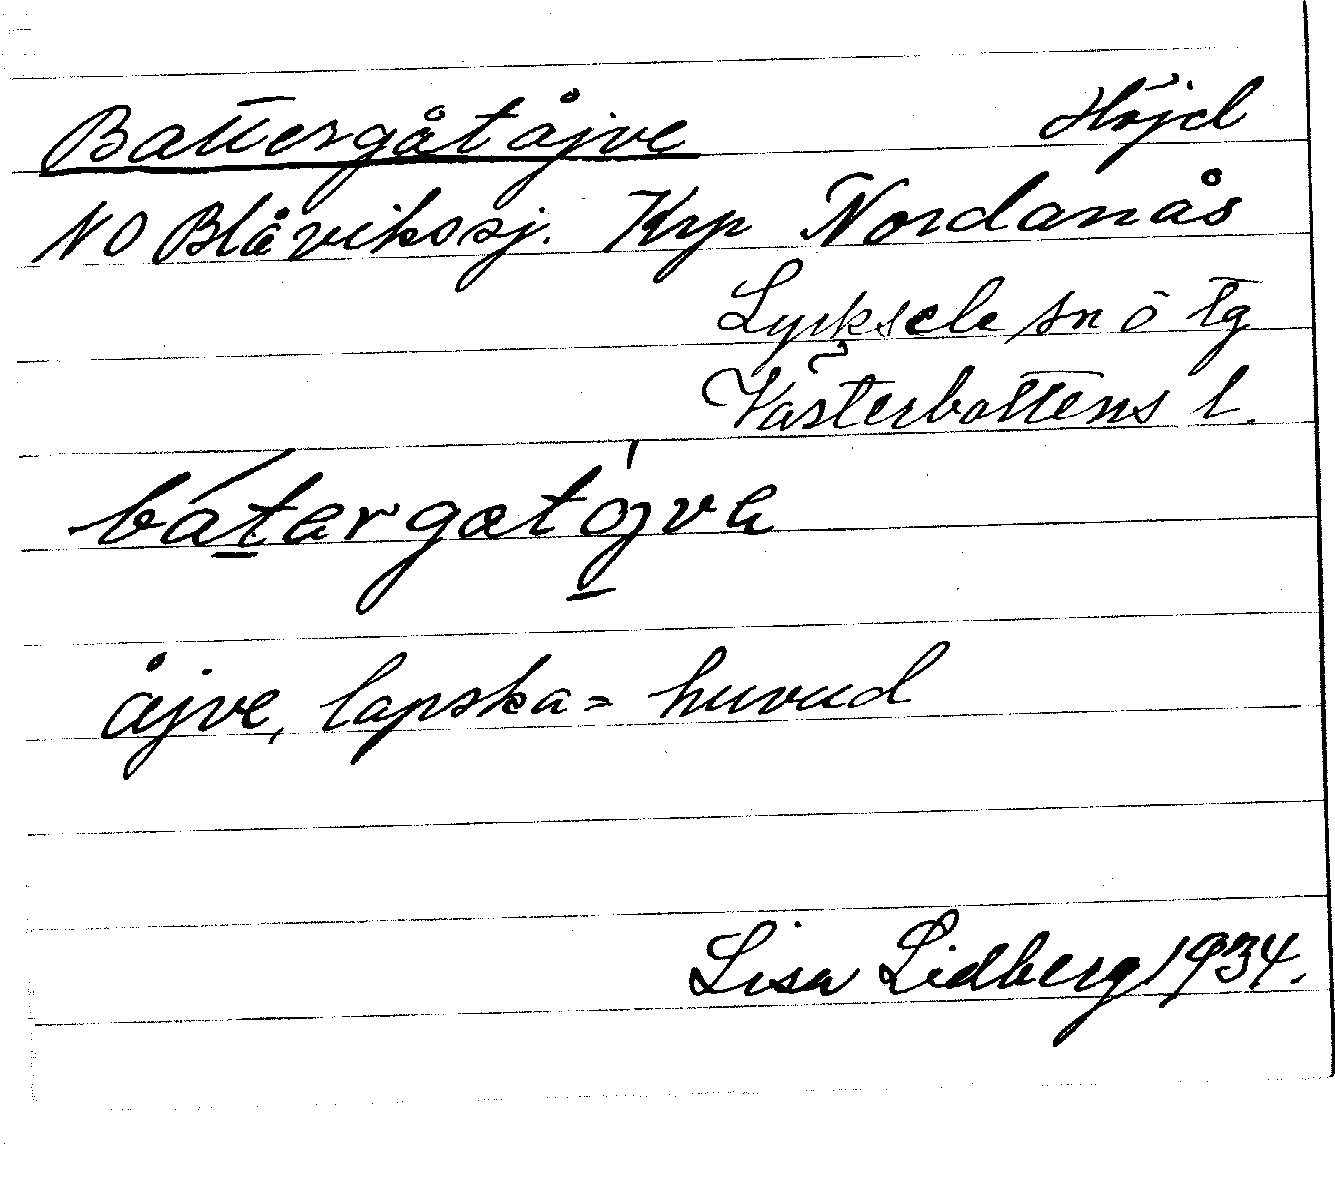 Battergåtåjve Höjd
NO Blåvikssj. Krp Nordanås
Lycksele sn o tg
Västerbottens l.
bátargatójva
åjve, lapska = huvud
Lisa Lidberg 1934.